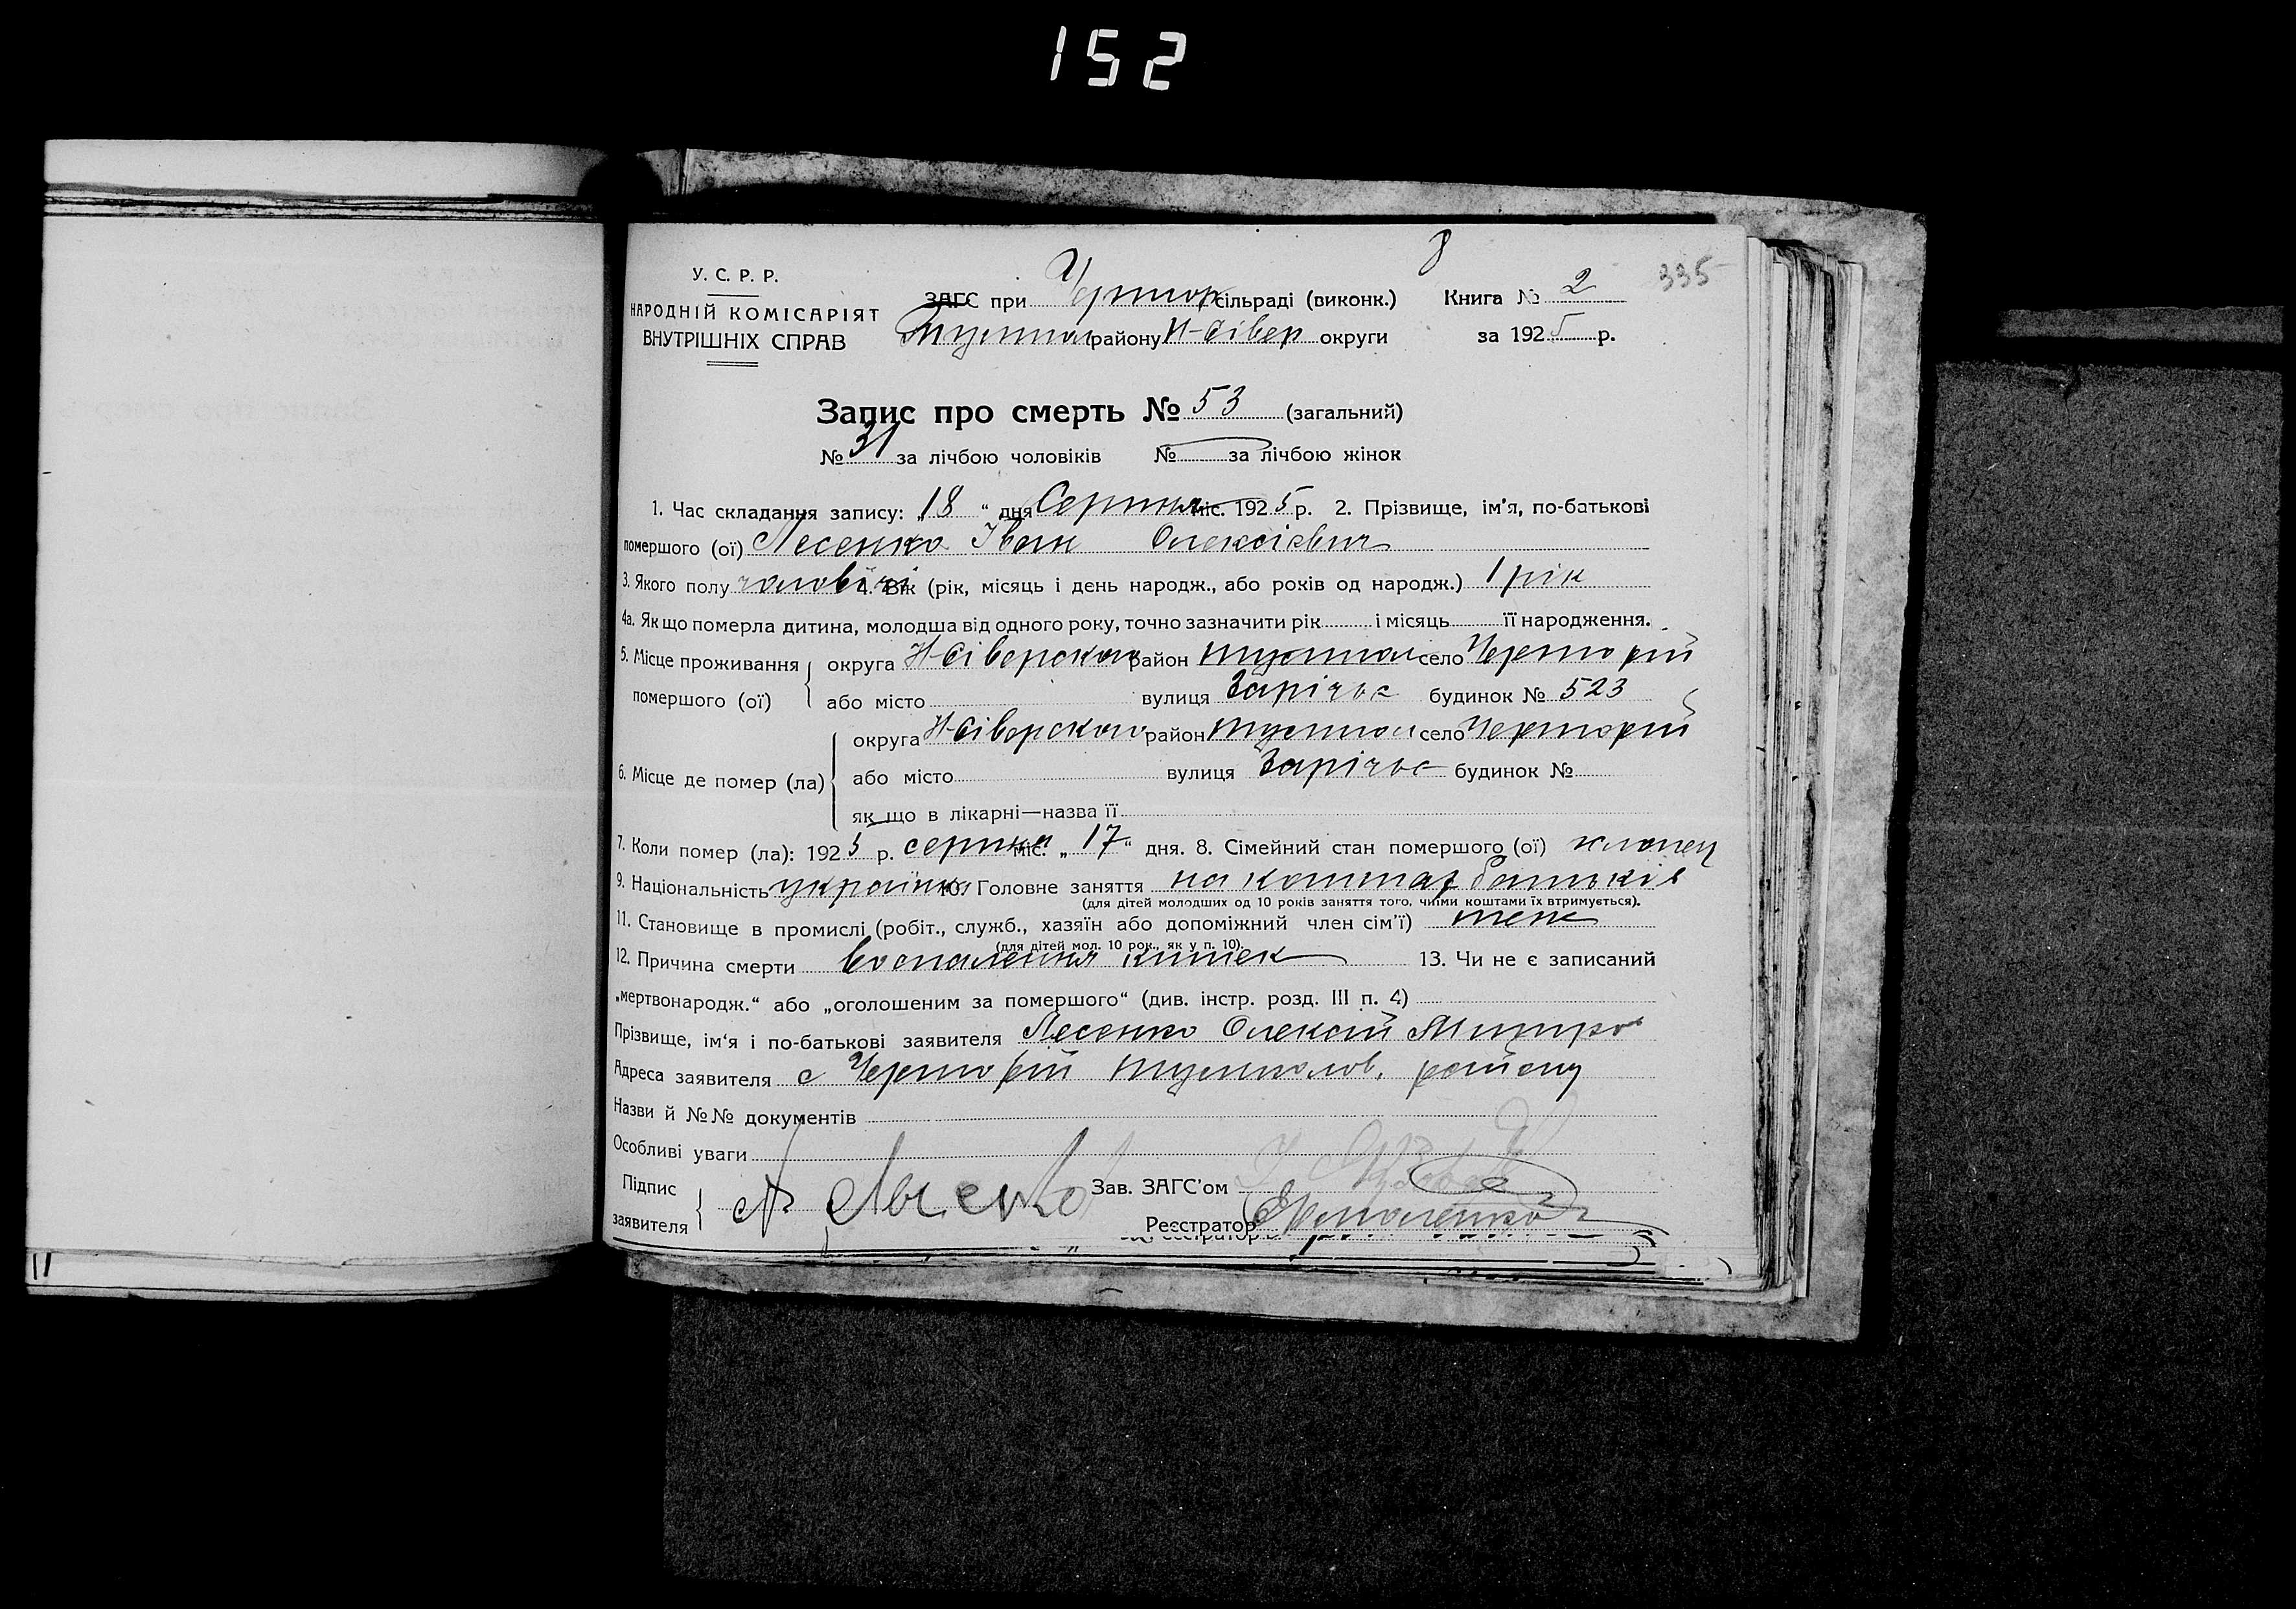 152
8
335
У. С. Р. Р.
НАРОДНІЙ КОМІСАРІЯТ
ВНУТРІШНІХ СПРАВ
ЗАГС при Чертор сільраді (виконк.) Книга № 2
району Н-Сівер округи за 1925 р.
Запис про смерть № 53 (загальний)
№ 31 за лічбою чоловіків № за лічбою жінок
1. Час складання запису: „18“ дня Серпня міс. 1925 р. 2. Прізвище, ім’я, по-батькові
помершого (ої) Лесенко Іван Олексієвич
3. Якого полу чоловічі 4. Вік (рік, місяць і день народж., або років од народж.) 1 рік
4а. Як що померла дитина, молодша від одного року, точно зазначити рік і місяць її народження.
5. Місце проживання округа Н-Сіверского район село Черторій
помершого (ої) або місто вулиця Зарічьє будинок № 523
округа Н-Сіверского район село Черторій
6. Місце де помер (ла) або місто вулиця Зарічьє будинок №
як що в лікарні—назва її
7. Коли помер (ла): 1925 р. серпня міс. „17“ дня. 8. Сімейний стан помершого (ої) хлопец
9. Національність 10. Головне заняття на коштах батьків
(для дітей молодших од 10 років заняття того, чиїми коштами їх втримується).
11. Становище в промислі (робіт., служб., хазяїн або допоміжний член сім’ї) член
(для дітей мол. 10 рок., як у п. 10).
12. Причина смерти воспаления кишек 13. Чи не є записаний
„мертвонародж.“ або „оголошеним за помершого“ (див. інстр. розд. III п. 4)
Прізвище, ім‘я і по-батькові заявителя Лесенко Олексій
Адреса заявителя с Черторій району
Назви й №№ документів
Особливі уваги
Підпис
заявителя
Зав. ЗАГС’ом
Реєстратор Ермоленко
11